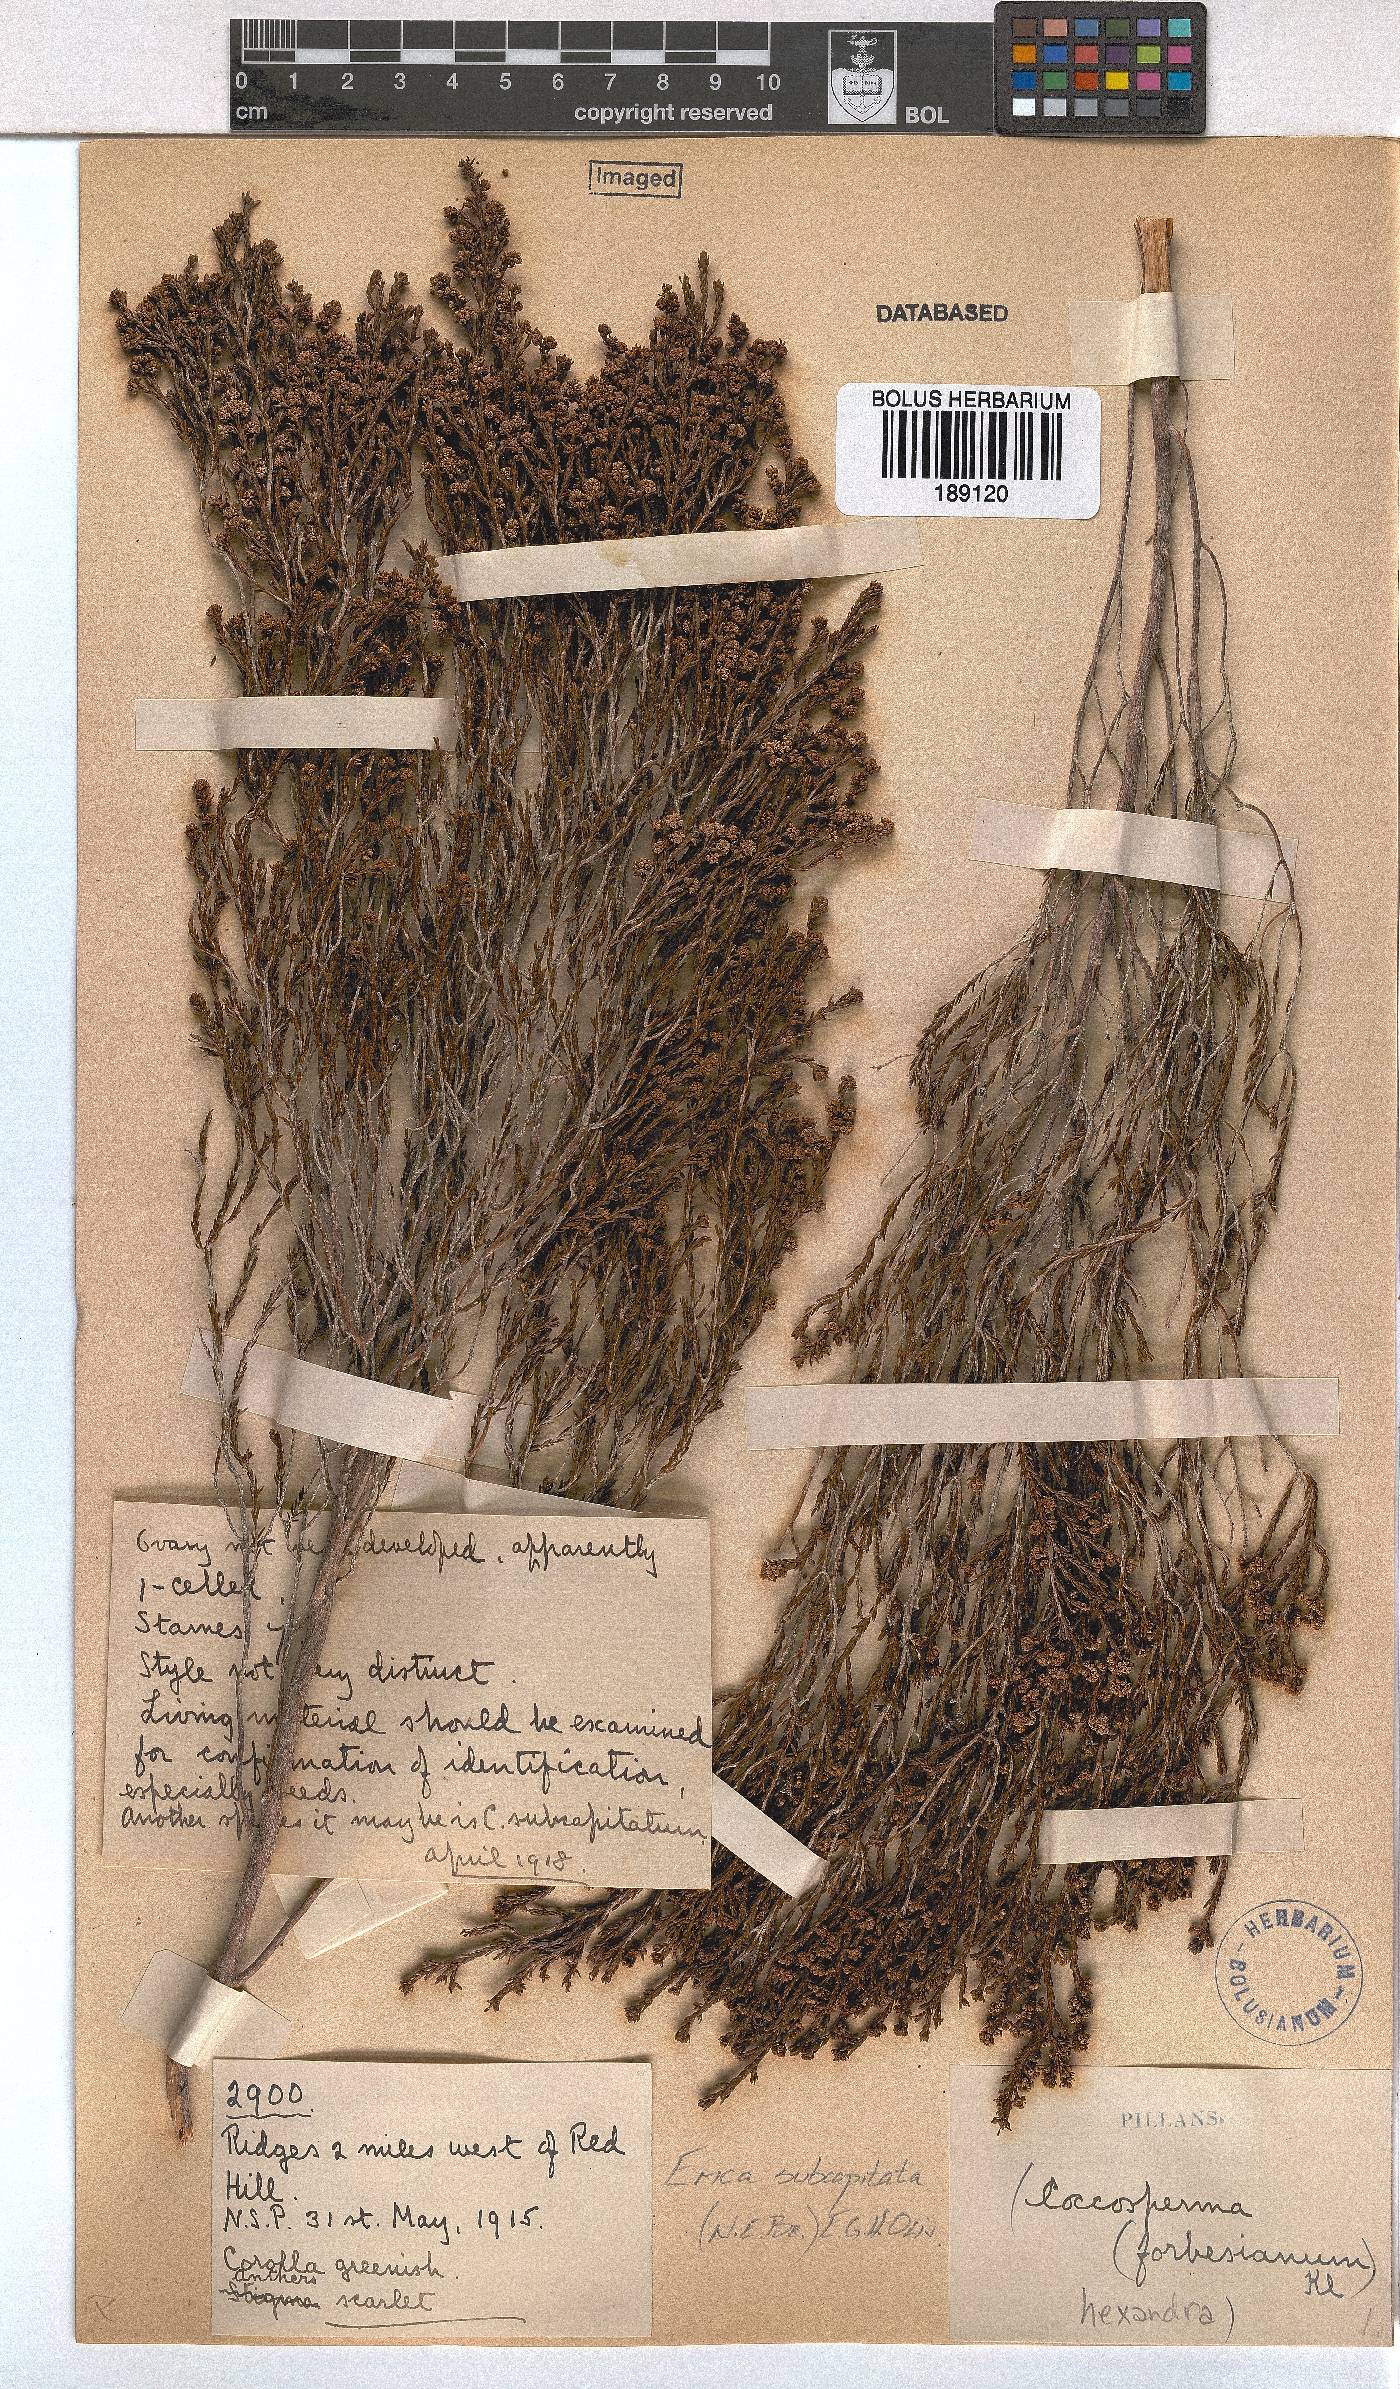 0 1 2 3 4 5 6 7 8 9 10
cm
copyright reserved
BOL
Imaged
DATABASED
BOLUS HERBARIUM
189120
Ovary not developed, apparently
1-celled
Stamens
Style not very distinct.
Living material should be examined
for confirmation of identification,
especially seeds.
Another species it may be is C. subcapitatum
April 1918.
HERBARIUM BOLUSIANUM
2900.
Ridges 2 miles west of Red
Hill.
N.S.P. 31st. May, 1915.
Corolla greenish.
Anthers
Stigma scarlet
Erica subcapitata
(N.E.Br.) E.G.H. Oliv
PILLANS.
(Coccosperma
(forbesianum)
Kl
hexandra)